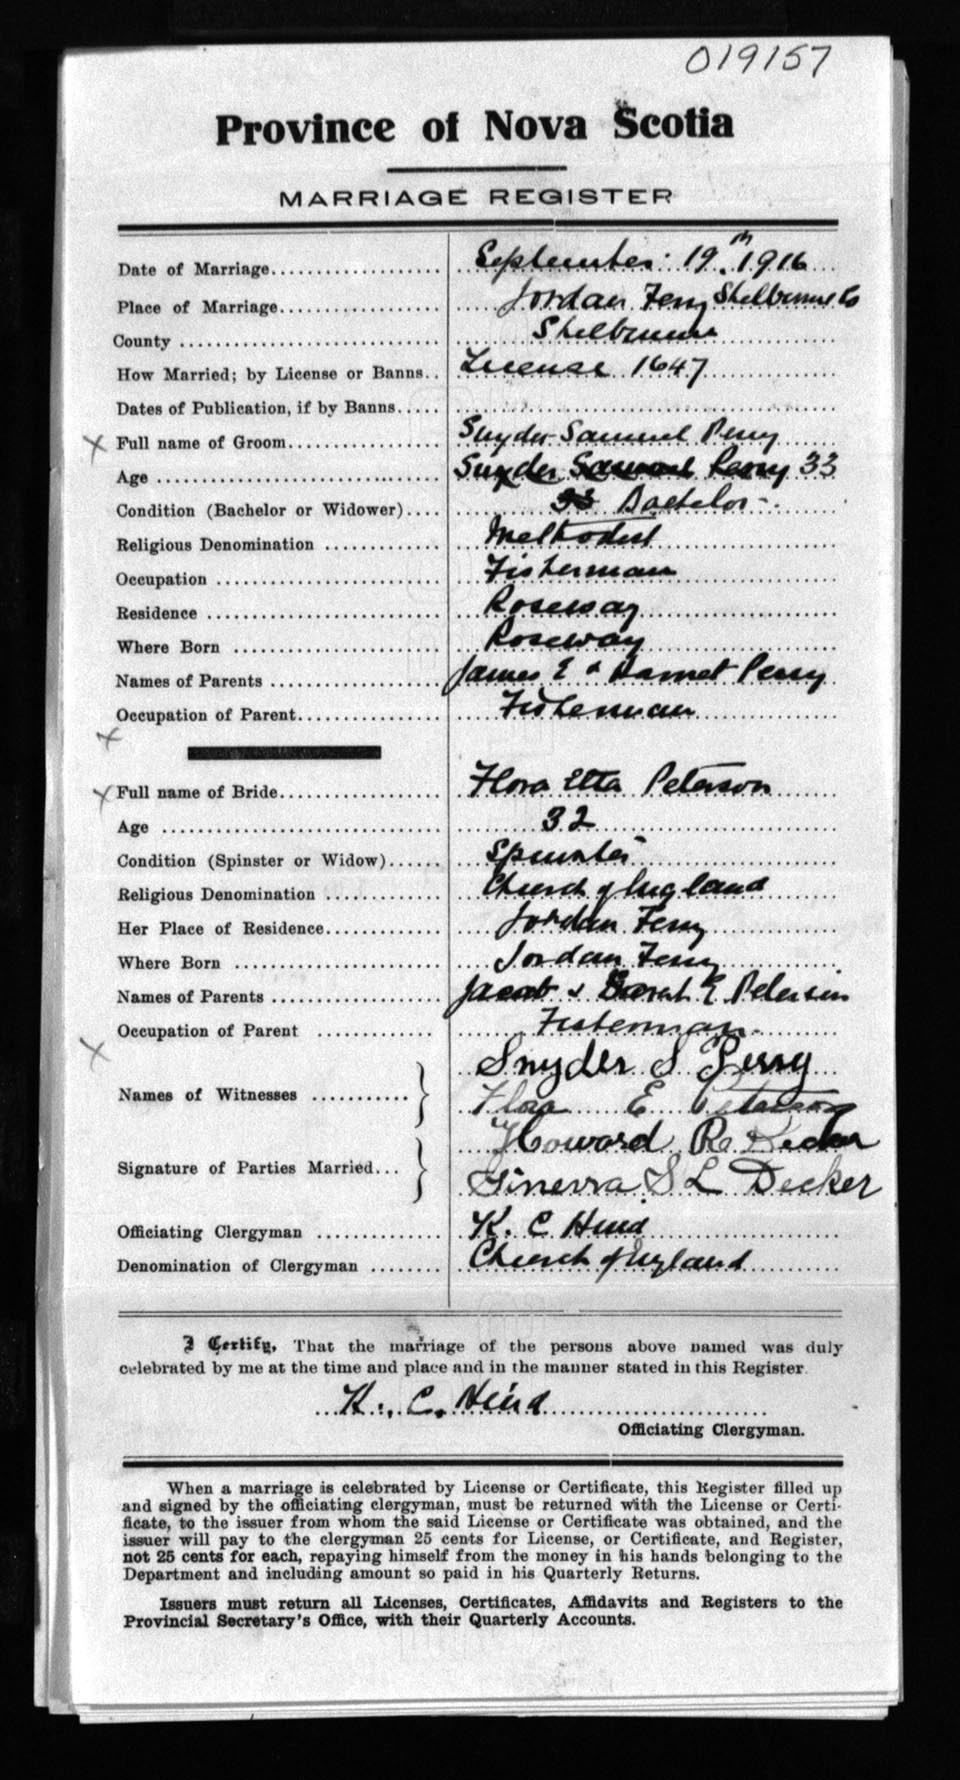 019157
Province of Nova Scotia
MARRIAGE REGISTER
Date of Marriage.................... September 19th, 1916
Place of Marriage................... Jordan Ferry Shelburne Co
County ............................ Shelburne
How Married; by License or Banns.. License 1647
Dates of Publication, if by Banns.....
x Full name of Groom................. Snyder Samuel Perry
Age .............................. Snyder Samuel Perry 33
Condition (Bachelor or Widower).... 33 Bachelor
Religious Denomination ............. Methodist
Occupation ......................... Fisherman
Residence .......................... Roseway
Where Born ........................ Roseway
Names of Parents ................... James E & Harriet Perry
Occupation of Parent................ Fisherman
x
x Full name of Bride.................. Flora Etta Peterson
Age ............................... 32
Condition (Spinster or Widow)...... Spinster
Religious Denomination ............. Church of England
Her Place of Residence............. Jordan Ferry
Where Born ........................ Jordan Ferry
Names of Parents ................... Jacob & Sarah E Peterson
Occupation of Parent .............. Fisherman
x
Snyder S Perry
Names of Witnesses ...........
Flora E Peterson
Howard R Decker
Signature of Parties Married...
Ginevra S L Decker
Officiating Clergyman .............. K. C Hind
Denomination of Clergyman ........ Church of England
I Certify, That the marriage of the persons above named was duly
celebrated by me at the time and place and in the manner stated in this Register.
K. C. Hind
Officiating Clergyman.
When a marriage is celebrated by License or Certificate, this Register filled up
and signed by the officiating clergyman, must be returned with the License or Certi-
ficate, to the issuer from whom the said License or Certificate was obtained, and the
issuer will pay to the clergyman 25 cents for License, or Certificate, and Register,
not 25 cents for each, repaying himself from the money in his hands belonging to the
Department and including amount so paid in his Quarterly Returns.
Issuers must return all Licenses, Certificates, Affidavits and Registers to the
Provincial Secretary's Office, with their Quarterly Accounts.